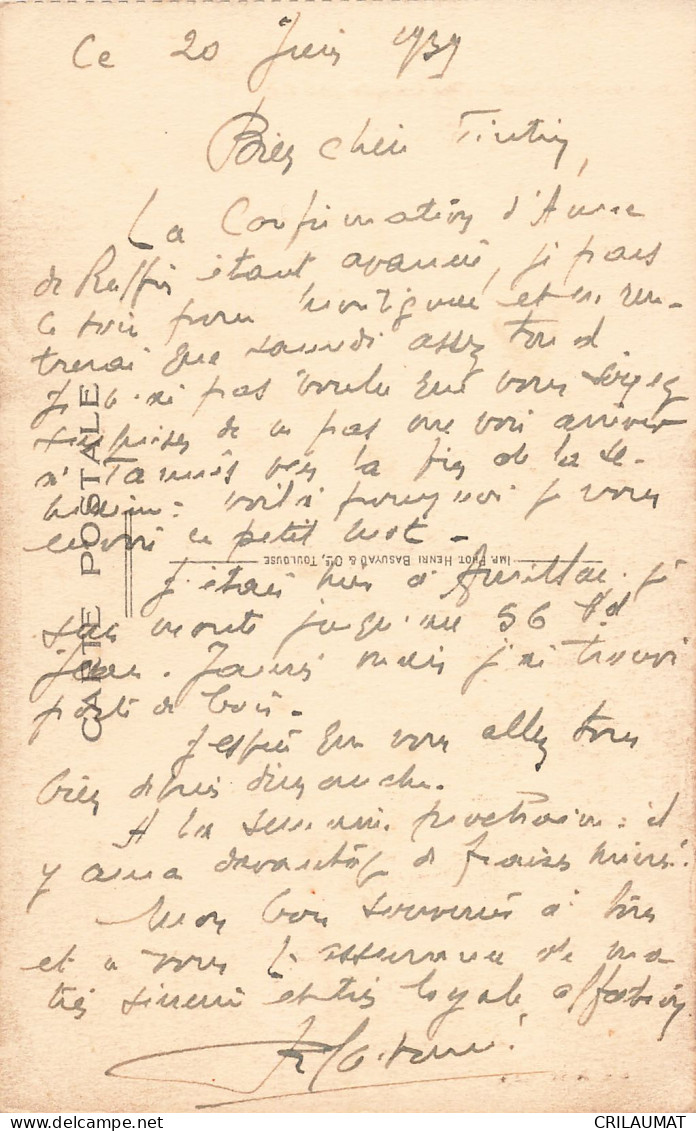 Ce 20 Juin 1939
Bien cher Tintin,
La Confirmation d'Anne
de Ruffin étant avancé, je pars
ce soir pour et ne ren-
trerai que samedi assez tard
Je n'ai pas voulu que vous soyez
surpris de ne pas me voir arriver
à vers la fin de la se-
maine : voilà pourquoi je vous
envoie ce petit mot -
J'étais hier à Aurillac. je
suis monté jusqu'au 56 Bd
Jean Jaurès mais j'ai trouvé
porte de bois -
J'espère que vous allez tous
bien depuis dimanche.
A la semaine prochaine : il
y aura davantage de fraises mûres !
Mon bon souvenir à tous
et à vous l'assurance de ma
très sincère et très loyale affection
CARTE POSTALE
IMP. PHOT. HENRI BASUYAU & Cie, TOULOUSE
CRILAUMAT